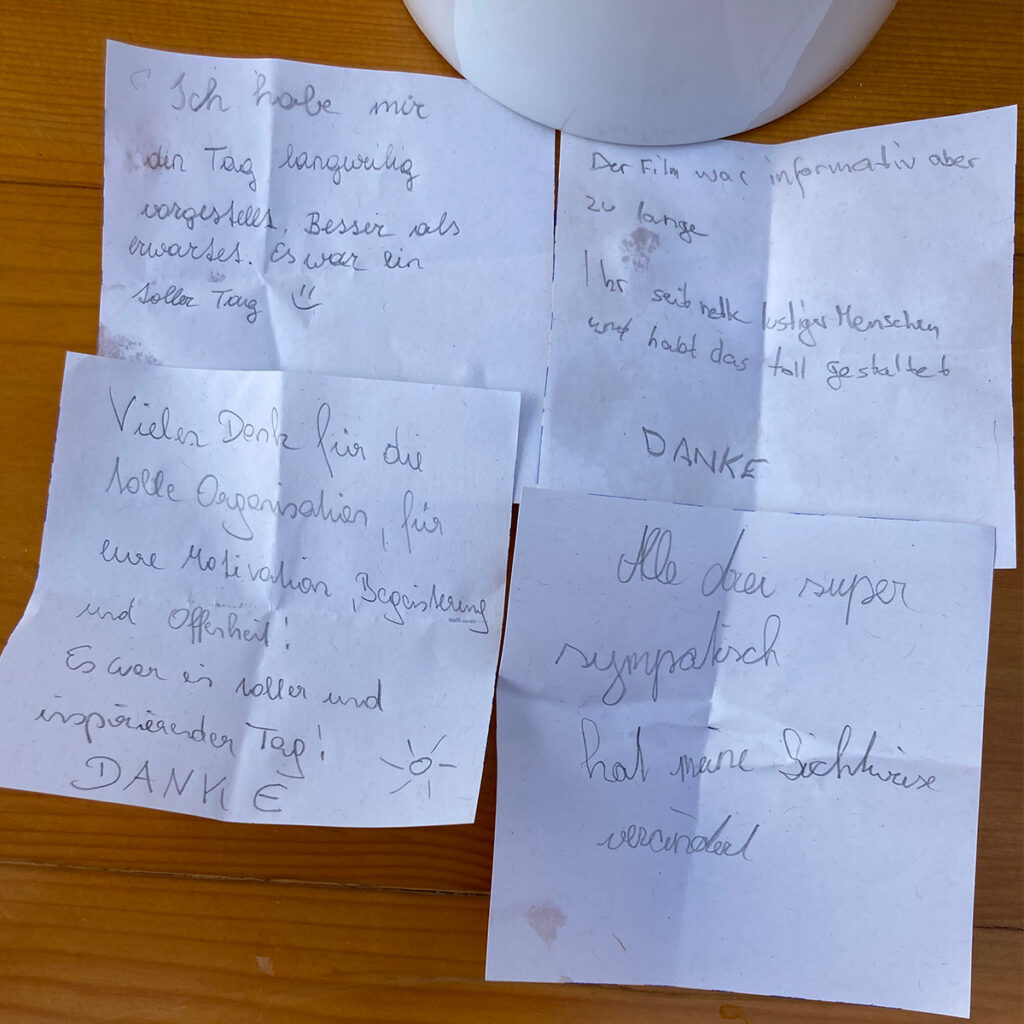 Ich habe mir
den Tag langweilig
vorgestellt. Besser als
erwartet. Es war ein
toller Tag
Der Film war informativ aber
zu lange
Ihr seit nette lustige Menschen
und habt das toll gestaltet
DANKE
Vielen Dank für die
tolle Organisation, für
eure Motivation, Begeisterung
und Offenheit!
Es war ein toller und
inspirierender Tag!
DANKE
Alle drei super
sympatisch
hat meine Sichtweise
verändert